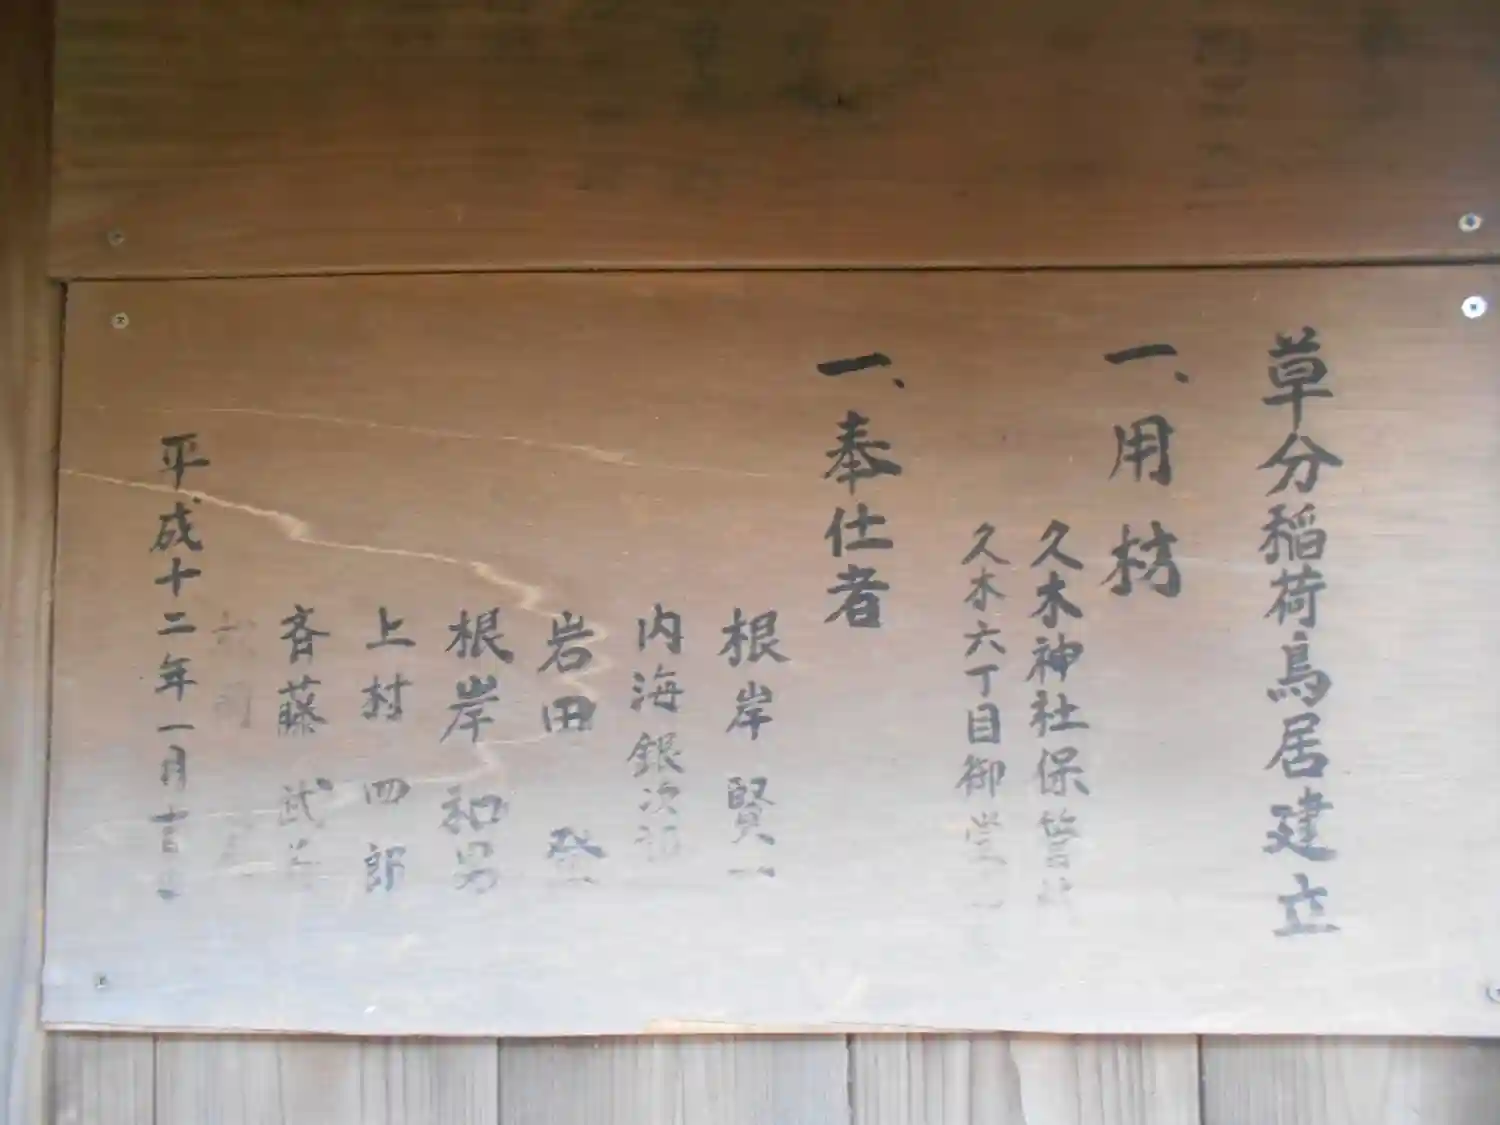 草分稲荷鳥居建立
一、用材
久木神社保管
久木六丁目御堂
一、奉仕者
根岸賢一
内海銀次郎
岩田 登
根岸和男
上村四郎
斉藤 武
平成十二年一月